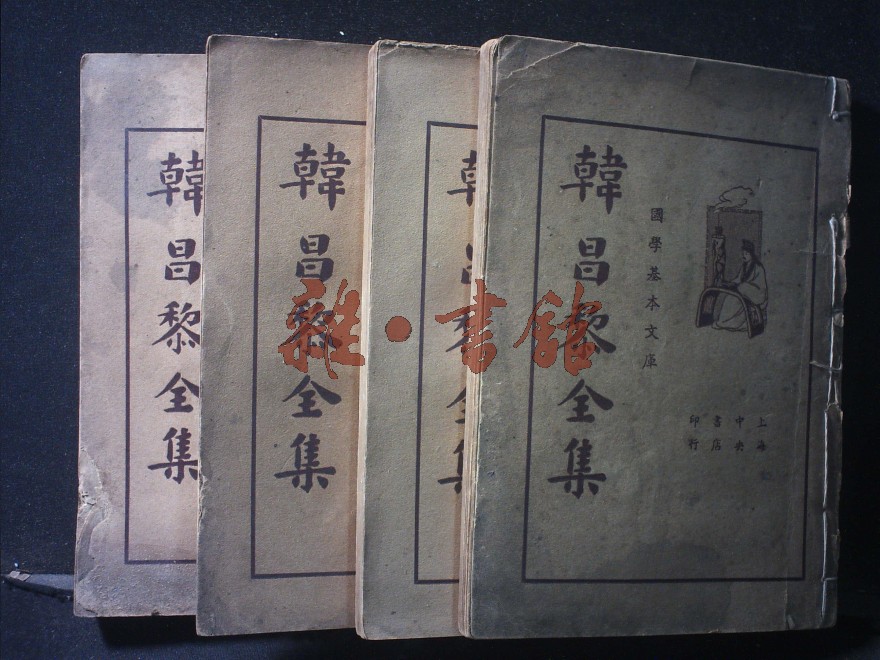 韓昌黎全集
韓昌黎全集
韓昌黎全集
韓昌黎全集
國學基本文庫
上海
中央
書店
印行
雜·書館